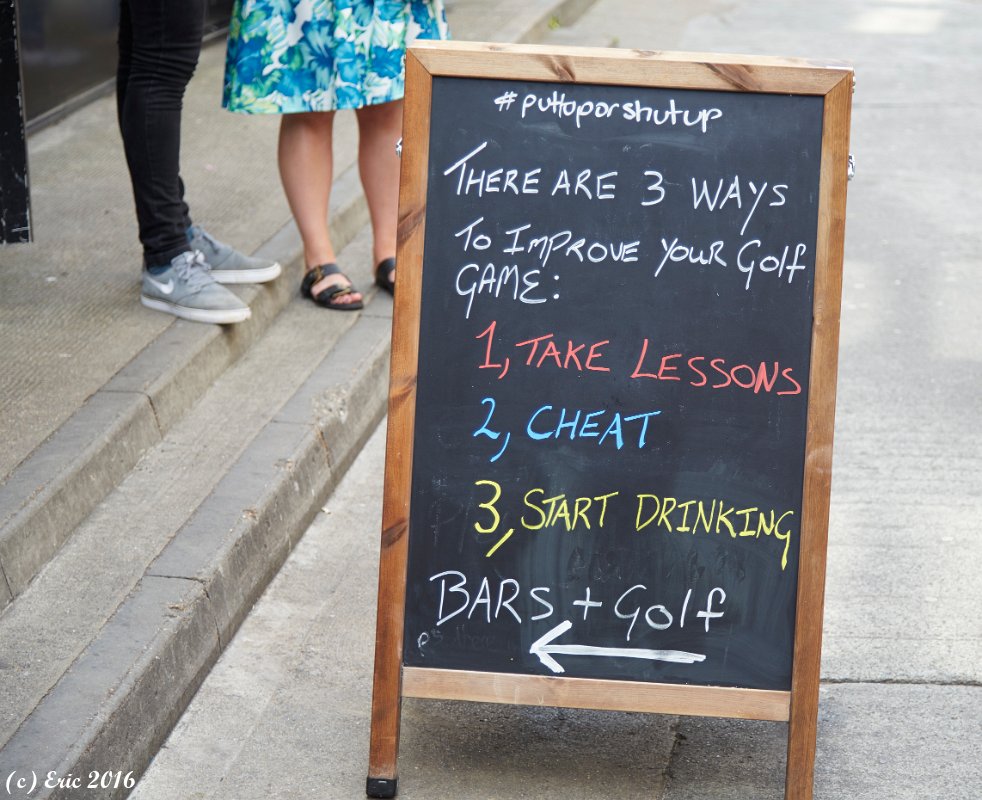 #puttoporshutup
THERE ARE 3 WAYS
To IMPROVE YOUR GOlf
GAME:
1, TAKE LESSONS
2, CHEAT
3, START DRINKING
BARS + GOlf
PS
(c) Eric 2016